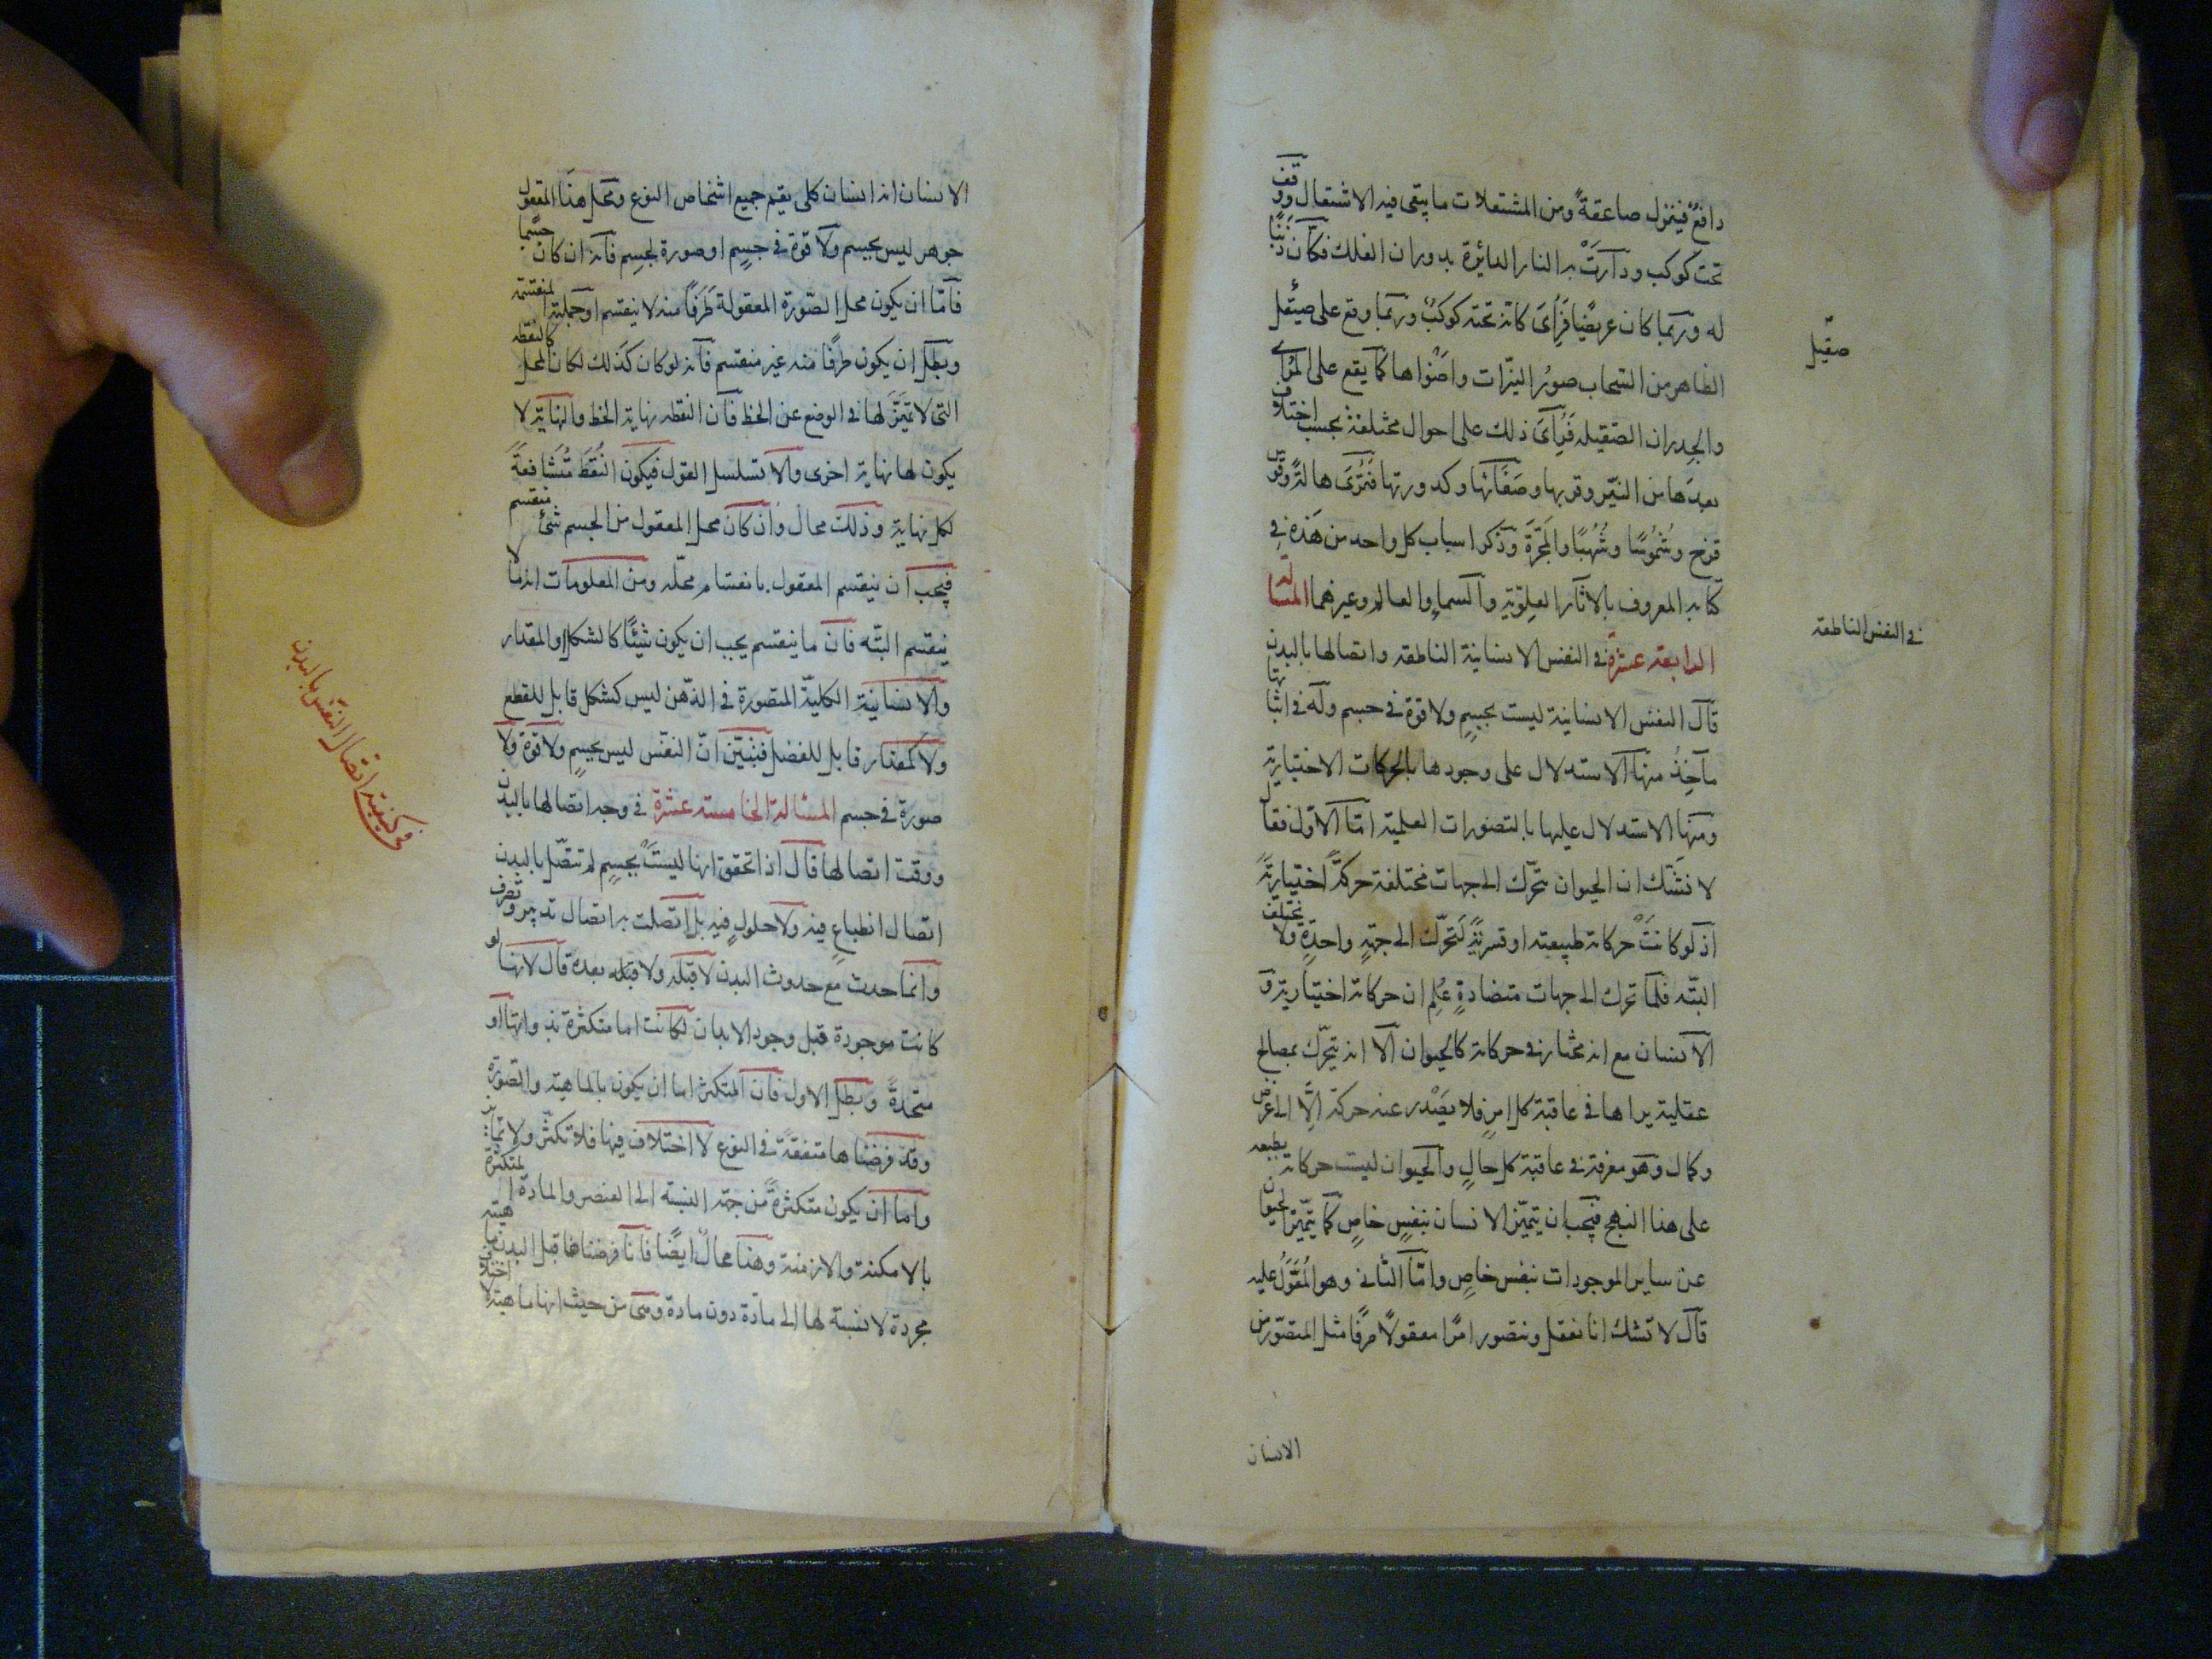 دافعٌ فينزل صاعقةً ومن المشتعلات ما يبقى فيه الاشتعال ووقف
تحت كوكب ودارَتْ به النار الدائرة بدوران الفلك فكان ذنبًا
له وربما كان عريضًا فرُأى كانه تحته كوكبٌ وربما وقع على صيقل
صقيل
الظاهر من السحاب صورُ النيرات واضوٰاها كما يقع على المرأى
والجدران الصقيله فيُرٰاى ذلك على احوال مختلفة بحسب اختلاف
بعدها من النيّر وقربها وصَفَائها وكدورتها فتُرى هالةً وقوس
قزح وشُمُوسًا وشُهُبًا والمَجَرّةَ وذكر اسباب كل واحد من هَذه في
كتابه المعروف بالاثار العِلويّة والسماءِ والعالم وغيرهما المسالة
الرابعة عشرة في النفس الانسانية الناطقه واتصالها بالبدن
في النفس الناطقه
قال النفس الانسانية ليست بجسمٍ ولا قوة في جسم وله في اثباتها
مآخِذُ منها الاستدلال على وجودها بالحركات الاختيارية
ومنها الاستدلال عليها بالتصورات العلمية امّا الاول فقال
لا نَشُك ان الحيوان يتحرّك الى جهات مختلفة حركةً اختياريّةً
اذ لو كانَتْ حركاته طبيعته او قسريّةً لتحرّك الى جهةٍ واحدةٍ ولا تختلف
البتّه فلمّا تحرك الى جهات متضادةٍ عُلِم ان حركاته اختيارية و
الانسان مع انه مختار في حركاته كالحيوان الّا انه يتحرّك بمصالح
عقلية يراها في عاقبة كل امرٍ فلا يَصْدر عنه حركة الَّا الى غرض
وكمال وهو معرفة في عاقبة كل حالٍ والحيوان ليست حركاته بطبعه
على هذا النهج فيجب ان يتميّز الانسان بنفسٍ خاصٍ كما يتميّز الحيوان
عن ساير الموجودات بنفس خاصٍ وامّا الثانى وهو المُعَوّلُ عليه
قال لا نشك انا نعقل ونتصور امرًا معقولًا صرفًا مثل المتصوّر من
الانسان
الانسان انه انسان كلى يعم جميع اشخاص النوع ومحل هذا المعقول
جوهر ليس بجسم ولا قوة في جسمٍ او صورة لجسم فانه ان كان جسمًا
فامّا ان يكون محل الصّورة المعقولة طَرَفًا منه لا ينقسم او جملته المنقسمة
وبطل ان يكون طرفًا منه غير منقسم فانه لو كان كذلك لكان المحل كالنقطه
التى لا تميّزَ لها في الوضع عن الخط فان النقطه نهاية الخط والنهاية لا
يكون لها نهاية اخرى والا تسلسل القول فيكون النُقَط مُتَشافعةً
لكل نهاية وذلك محال وان كان محل المعقول من الجسم شئ منقسم
فيجب ان ينقسم المعقول بانقسام محلّه ومن المعلومات انه ما لا
ينقسم البتّه فان ما ينقسم يجب ان يكون شيئًا كالشكل او المقدار
والانسانية الكلية المتصورة في الذهن ليس كشكل قابل للقطع
ولا كمقدار قابل للفصل فتبيّن انّ النفس ليس بجسمٍ ولا قوة ولا
صورة في جسم المسئالة الخامسته عشرة في وجه اتصالها بالبدن
في كيفية اتصال النفس بالبدن
ووقت اتصالها قال اذا تحقق انها ليستَ بجسمٍ لم تتصّل بالبدن
اتصال انطباعٍ فيه ولا حلولٍ فيه بل اتصلت به اتصال تدبير وتصرف
وانما حدث مع حدوث البدن لا قبله ولا بعده قال لانها لو
كانت موجودة قبل وجود الابدان لكانت اما متكثرة بذواتها او
متحدةً وبطل الاول فان المتكثر اما ان يكون بالماهية والصورة
وقد فرضناها متفقةً في النوع لا اختلاف فيها فلا تكثّر ولا تمايز
واما ان يكون متكثرةً من جهة النسبته الى العنصر والمادة المتكثرة
بالامكنة والازمنة وهذا محالٌ ايضًا فانّا فرضناها قبل البدن ماهيته
مجردة لا نسبة لها الى مادة دون مادة وهى من حيث انها ماهيته لا اختلاف